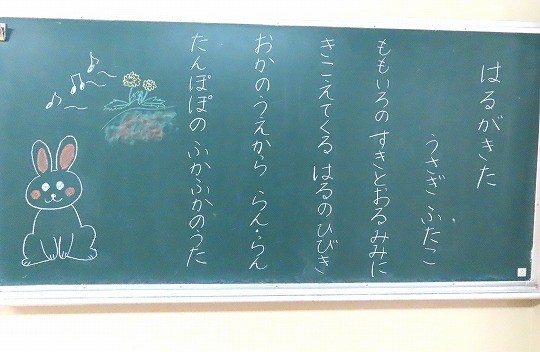 はるがきた
うさぎ ふたこ
ももいろの すきとおるみみに
きこえてくる はるのひびき
おかのうえから らん・らん
たんぽぽの ふかふかのうた